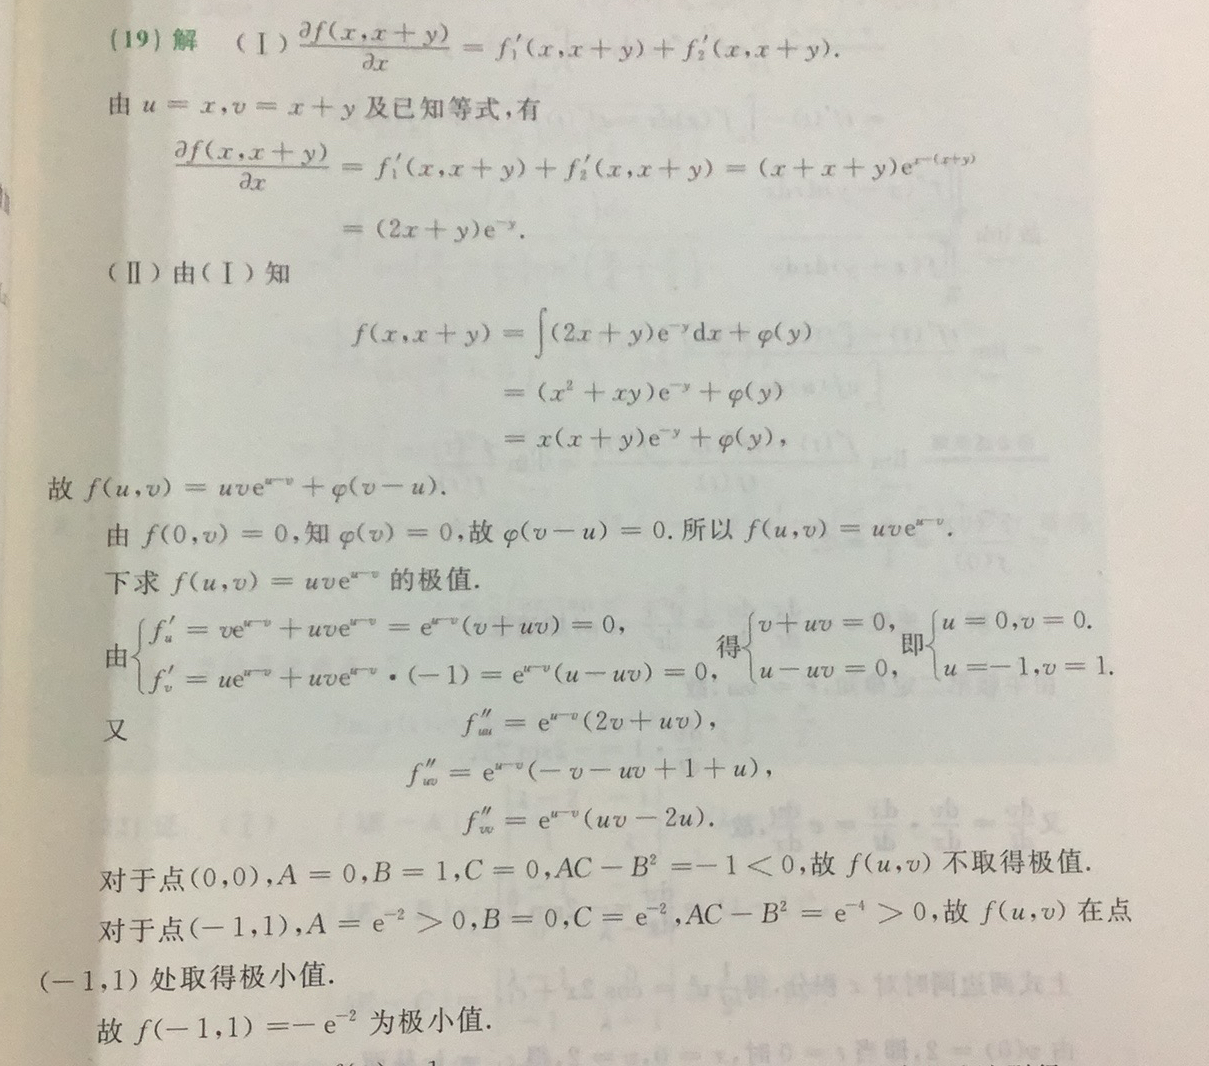 (19) 解 (Ⅰ) ∂f(x,x+y)/∂x = f₁′(x,x+y)+f₂′(x,x+y).
由 u = x,v = x+y 及已知等式,有
∂f(x,x+y)/∂x = f₁′(x,x+y)+f₂′(x,x+y) = (x+x+y)e^{x-(x+y)}
= (2x+y)e^{-y}.
(Ⅱ) 由(Ⅰ)知
f(x,x+y) = ∫(2x+y)e^{-y}dx+φ(y)
= (x²+xy)e^{-y}+φ(y)
= x(x+y)e^{-y}+φ(y),
故 f(u,v) = uve^{u-v}+φ(v-u).
由 f(0,v) = 0,知 φ(v) = 0,故 φ(v-u) = 0. 所以 f(u,v) = uve^{u-v}.
下求 f(u,v) = uve^{u-v} 的极值.
由{f′_u = ve^{u-v}+uve^{u-v} = e^{u-v}(v+uv) = 0, 得{v+uv = 0, 即{u = 0,v = 0.
f′_v = ue^{u-v}+uve^{u-v}·(-1) = e^{u-v}(u-uv) = 0, u-uv = 0, u =-1,v = 1.
又 f″_{uu} = e^{u-v}(2v+uv),
f″_{uv} = e^{u-v}(-v-uv+1+u),
f″_{vv} = e^{u-v}(uv-2u).
对于点(0,0),A = 0,B = 1,C = 0,AC-B² =-1<0,故 f(u,v) 不取得极值.
对于点(-1,1),A = e^{-2} > 0,B = 0,C = e^{-2},AC-B² = e^{-4} > 0,故 f(u,v) 在点
(-1,1) 处取得极小值.
故 f(-1,1) =-e^{-2} 为极小值.